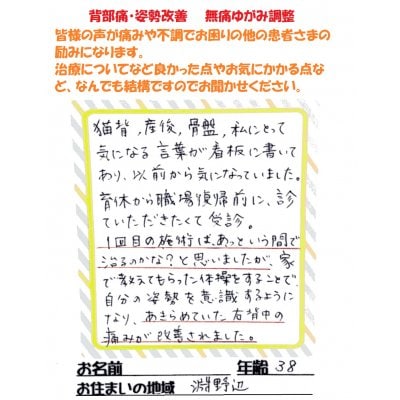 背部痛・姿勢改善　無痛ゆがみ調整
皆様の声が痛みや不調でお困りの他の患者さまの
励みになります。
治療についてなど良かった点やお気にかかる点な
ど、なんでも結構ですのでお聞かせください。
猫背,産後,骨盤,私にとって
気になる言葉が看板に書いて
あり、以前から気になっていました。
育休から職場復帰前に、診
ていただきたくて受診。
1回目の施術は、あっという間で
治るのかな?と思いましたが、家
で教えてもらった体操をすることで、
自分の姿勢を意識するように
なり、あきらめていた右背中の
痛みが改善されました。
お名前　年齢 38
お住まいの地域　淵野辺